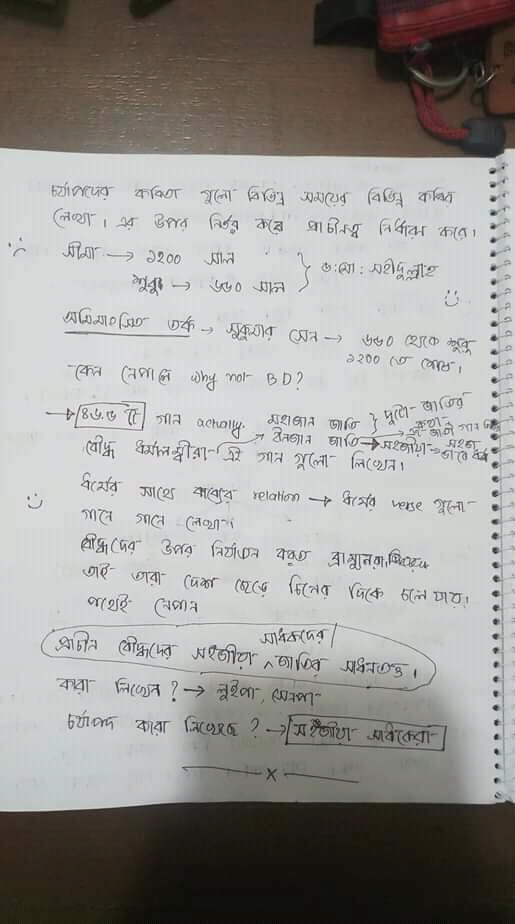 চর্যাপদের কবিতা গুলো বিভিন্ন সময়ের বিভিন্ন কবির
লেখা। এর উপর নির্ভর করে প্রাচীনত্ব নির্ধারণ করে।
সীমা → ১২০০ সাল
শুরু → ৬৫০ সাল } ড: মো: সহীদুল্লাহ
অমিমাংসিত তর্ক → সুকুমার সেন → ৬৫০ থেকে শুরু
১২০০ তে শেষ।
কেন নেপালে why not BD?
→ ৪৬.৬ টি গান actualy মহাজান জাতি } দুটো জাতির
জাতি → সহজীয়া → সহজ
বৌদ্ধ ধর্মালম্বীরা এই গান গুলো লিখেন।
ধর্মের সাথে কাব্যের relation → ধর্মের verse গুলো
গানে গানে লেখা।
বৌদ্ধদের উপর নির্যাতন করত ব্রাহ্মনরা,
তাই তারা দেশ ছেড়ে চিনের দিকে চলে যায়।
পথেই নেপাল
সাধকদের
প্রাচীন বৌদ্ধদের সহজীয়া ^ জাতির সাধনতত্ত।
কারা লিখেন? → লুইপা,
চর্যাপদ কারা লিখেছে? → সহজীয়া সাধকেরা
x